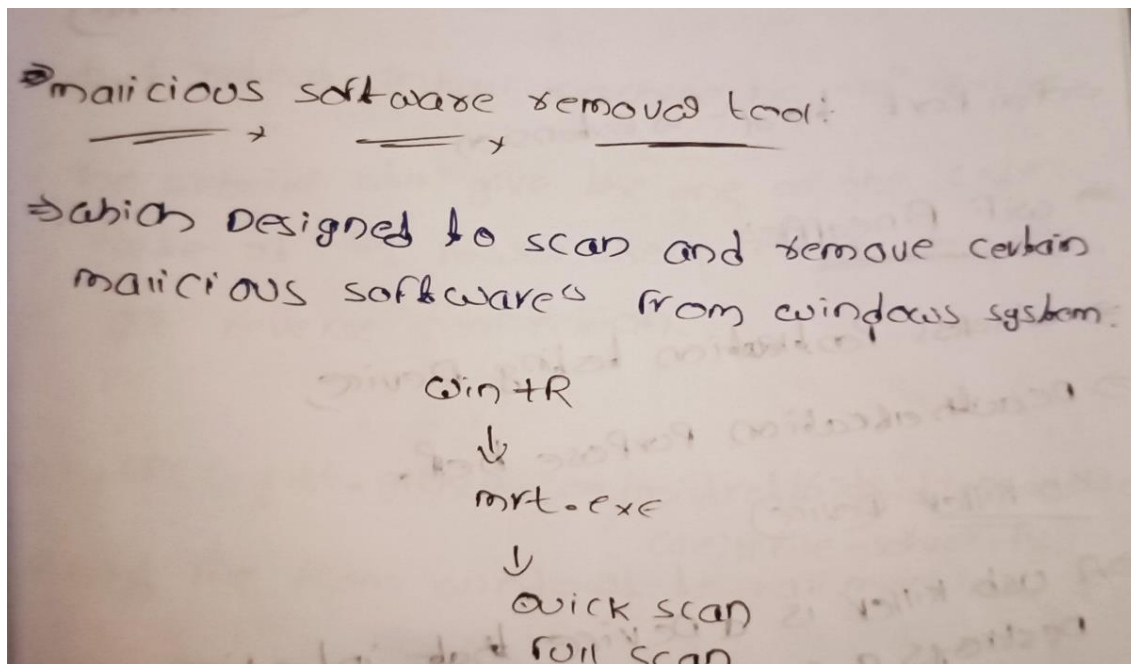 ⇒ malicious software removal tool:
⇒ which Designed to scan and remove certain
malicious softwares from windows system.
Win +R
↓
mrt.exe
↓
Quick scan
Full scan